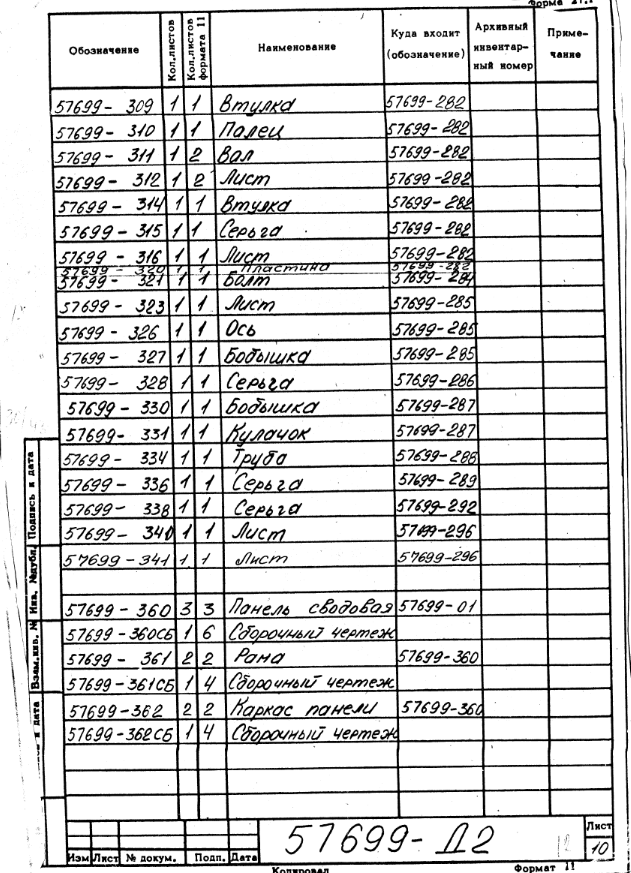 Форма 2г.1
Обозначение Кол.листов Кол.листов формата 11 Наименование Куда входит (обозначение) Архивный инвентарный номер Примечание
57699- 309 1 1 Втулка 57699-282
57699- 310 1 1 Палец 57699-282
57699- 311 1 2 Вал 57699-282
57699- 312 1 2 Лист 57699-282
57699- 314 1 1 Втулка 57699-282
57699- 315 1 1 Серьга 57699-282
57699- 316 1 1 Лист 57699-282
57699- 320 1 1 Пластина 57699-282
57699- 321 1 1 Болт 57699-284
57699- 323 1 1 Лист 57699-285
57699- 326 1 1 Ось 57699-285
57699- 327 1 1 Бобышка 57699-285
57699- 328 1 1 Серьга 57699-286
57699- 330 1 1 Бобышка 57699-287
57699- 331 1 1 Кулачок 57699-287
57699- 334 1 1 Труба 57699-288
57699- 336 1 1 Серьга 57699-289
57699- 338 1 1 Серьга 57699-292
57699- 340 1 1 Лист 57699-296
57699-341 1 1 Лист 57699-296
57699-360 3 3 Панель сводовая 57699-01
57699-360СБ 1 6 Сборочный чертеж
57699- 361 2 2 Рама 57699-360
57699-361СБ 1 4 Сборочный чертеж
57699-362 2 2 Каркас панели 57699-360
57699-362СБ 1 4 Сборочный чертеж
Подпись и дата
Инв. №дубл.
Взам.инв. №
и дата
57699-Д2
12
Лист
10
Изм Лист № докум. Подп. Дата
Копировал Формат 11